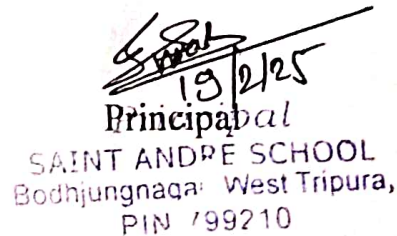 19/2/25
Principal
SAINT ANDRE SCHOOL
Bodhjungnagar West Tripura,
PIN 799210